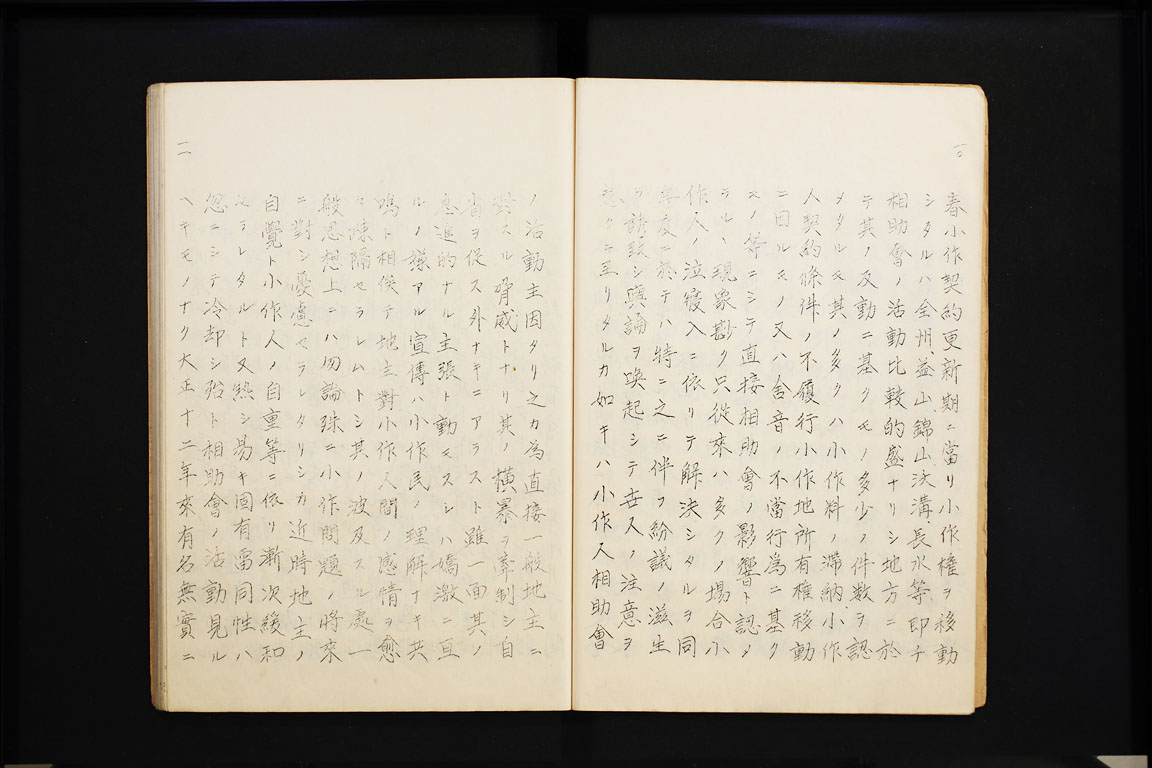 一〇
春小作契約更新期ニ當リ小作權ヲ移動
シタルハ全州、益山、錦山、沃溝、長水等、即チ
相助會ノ活動比較的盛ナリシ地方ニ於
テ其ノ反動ニ基クモノ多少ノ件数ヲ認
メタルモ其ノ多クハ小作料ノ滞納、小作
人契約條件ノ不履行小作地所有權移動
ニ因ルモノ又ハ舍音ノ不當行為ニ基ク
モノ等ニシテ直接相助會ノ影響ト認メ
ラルヽ現象尠ク只從來ハ多クノ場合小
作人ノ泣寝入ニ依リテ解決シタルヲ同
年度ニ於テハ特ニ之ニ伴フ紛議ノ滋生
ヲ誘致シ輿論ヲ喚起シテ世人ノ注意ヲ
惹クニ至リタルカ如キハ小作人相助會
一一
ノ活動主因タリ之カ為直接一般地主ニ
對スル脅威トナリ其ノ横暴ヲ牽制シ自
省ヲ促ス外ナキニアラスト雖一面其ノ
急進的ナル主張ト動モスレハ矯激ニ亘
ルノ嫌アル宣傳ハ小作民ノ理解ナキ共
鳴ト相俟テ地主對小作人間ノ感情ヲ愈
々疎隔セラレムトシ其ノ波及スル處一
般思想上ニハ勿論殊ニ小作問題ノ將來
ニ對シ憂慮セラレタリシカ近時地主ノ
自覺ト小作人ノ自重等ニ依リ漸次緩和
セラレタルト又熱シ易キ固有雷同性ハ
忽ニシテ冷却シ殆ト相助會ノ活動見ル
ヘキモノナク大正十二年來有名無實ニ